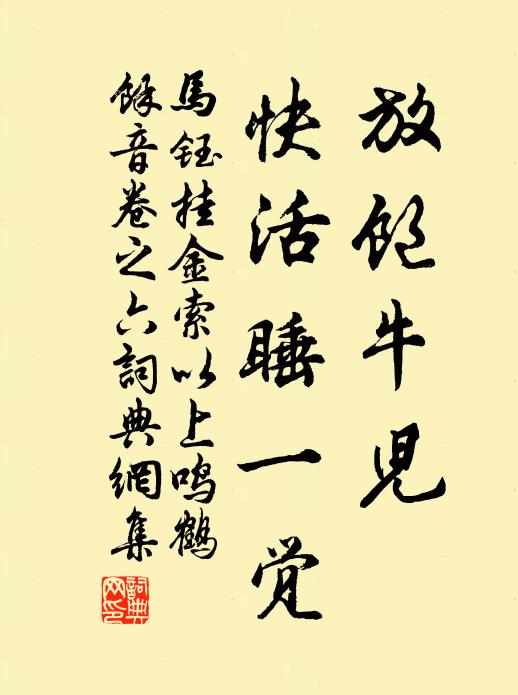 放饱牛児
快活睡一觉
馬鈺挂金索以上鸣鶴
餘音卷之六詞典網集
詞典网印